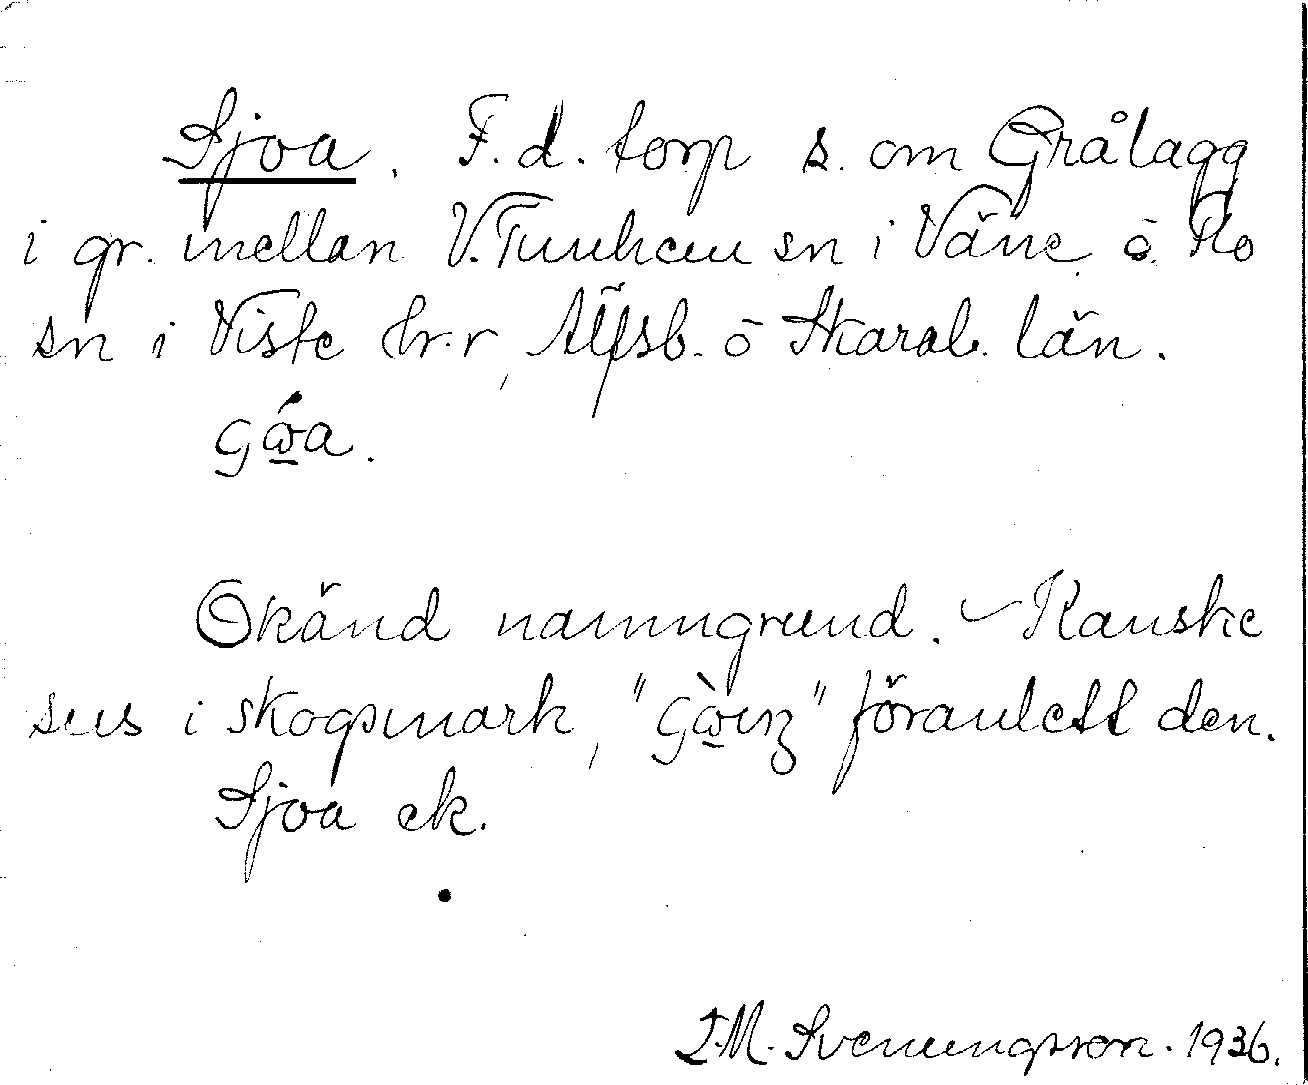 Sjoa. F.d. torp s. om Grålagg
i gr. mellan V. Tunhem sn i Väne ō. Flo
sn i Viste hr.r, Älfsb. ō Skarab. län.
Okänd namngrund. – Kanske
sus i skogsmark, " " föranlett den.
Sjoa ek.
I.M. Svenungsson. 1936.